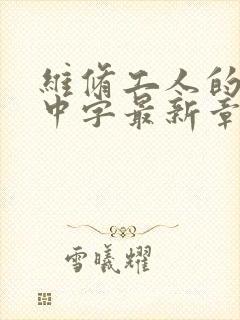 維脩工人的
中字最新章
雪曦耀